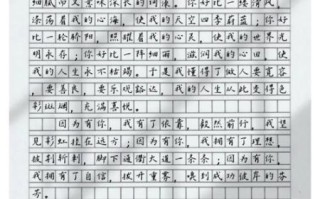 细腻而又意味深长的词条。你好比一缕清风，
涤荡着我的心海，使我的天空四季蔚蓝；你好
比一轮骄阳，照耀着我的心灵，使我的世界光
明永存；你好比一阵细雨，滋润我的心田，使
我的人生永不枯竭。于是我懂得了做人要宽容
，要善良，要乐观豁达，我的人生从此变得色
彩斑斓，充满喜悦。
因为有你，我拥有了依靠，毅然前行。我望
见彩虹挂在远方；因为有你，我拥有了理想，
披荆斩棘，脚下通衢大道一条条；因为有你，
我拥有了自信，拨开重雾，嗅到成功彼岸的芬
芳。